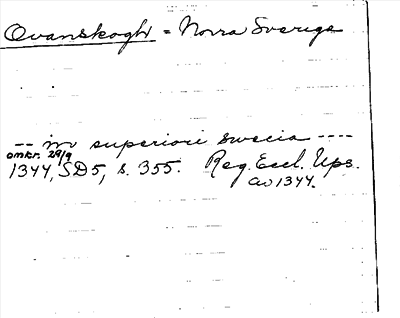 Ovanskogh = Norra Sverige
-- in superiori swecia ----
omkr. 29/9
1344, SD5, s. 355. Reg. Eccl. Ups.
av 1344.